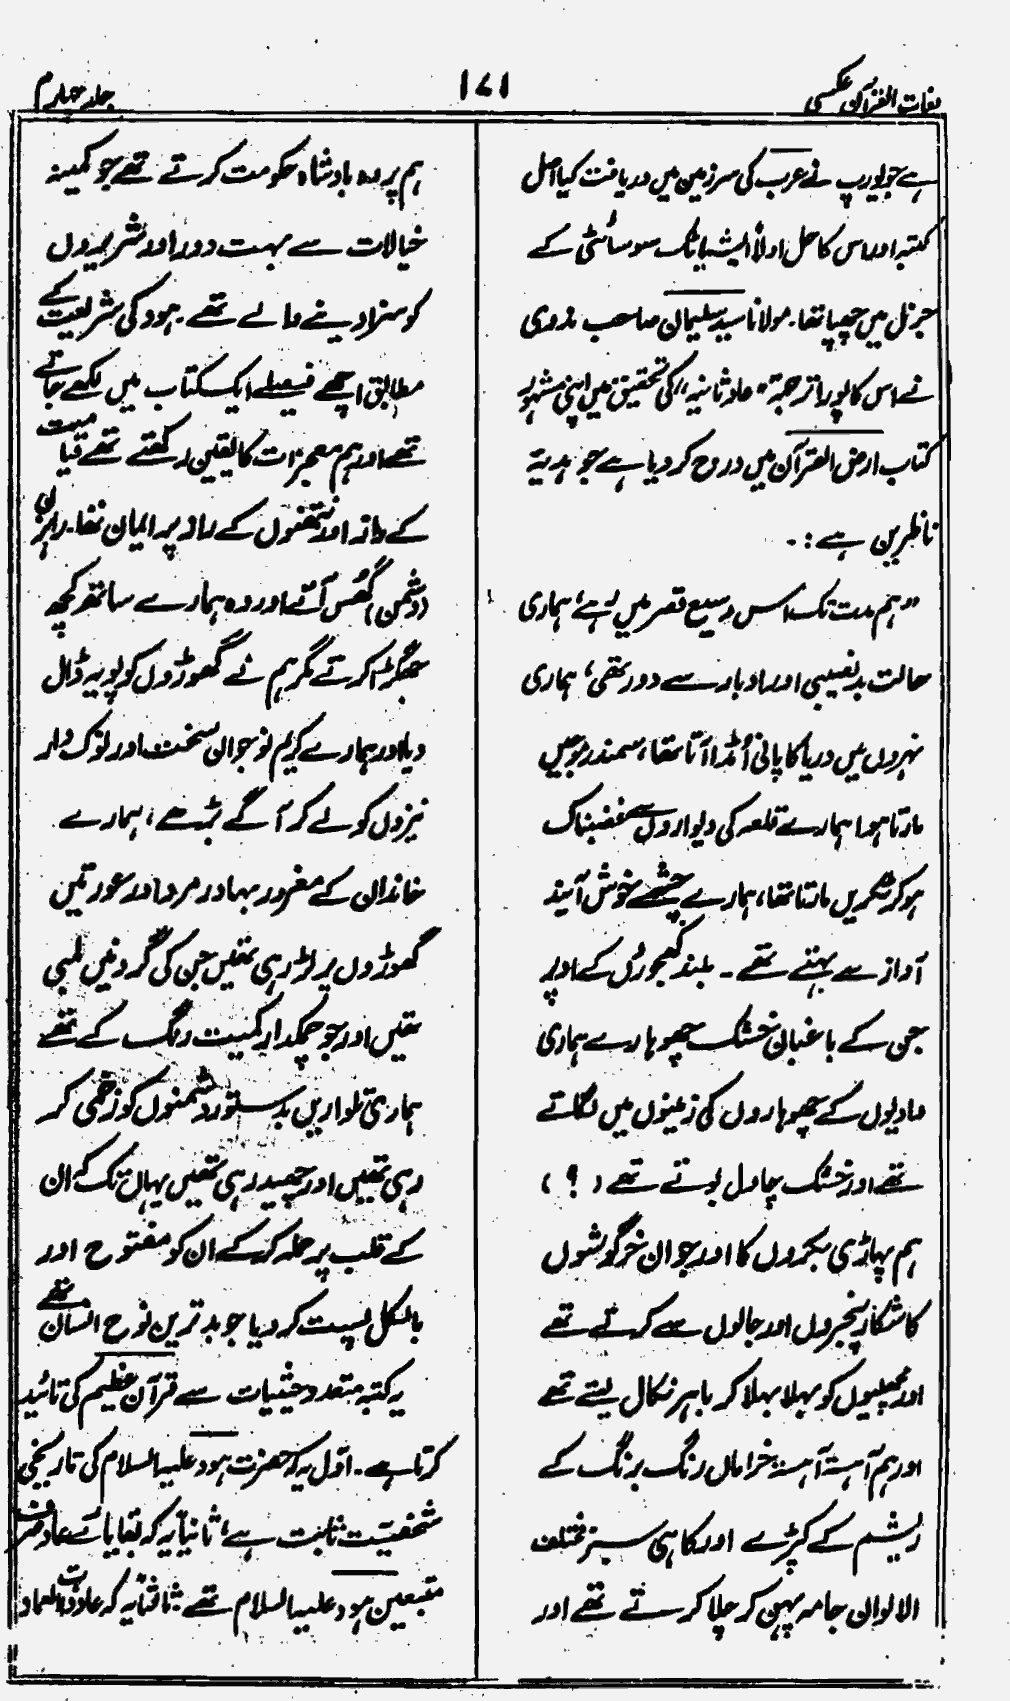 لغات القرآن عکسی
۱۷۱
جلد چہارم
ہے جو یورپ نے عرب کی سرزمین میں دریافت کیا اصل
کتبہ اور اس کا حل اولاً ایشیاٹک سوسائٹی کے
جرنل میں چھپا تھا۔ مولانا سید سلیمان صاحب ندوی
نے اس کا پورا ترجمہ "عاد ثانیہ" کی تحقیق میں اپنی مشہور
کتاب ارض القرآن میں درج کر دیا ہے جو ہدیۂ
ناظرین ہے :۔
"ہم مدت تک اس وسیع قصر میں رہے، ہماری
حالت بدنصیبی اور ادبار سے دور تھی، ہماری
نہروں میں دریا کا پانی اُمڈا آتا تھا، سمندر موجیں
مارتا ہوا ہمارے قلعہ کی دیواروں سے غضبناک
ہو کر ٹکریں مارتا تھا، ہمارے چشمے خوش آیند
آواز سے بہتے تھے ۔ بلند کھجوروں کے اوپر
جن کے باغبان خشک چھوہارے ہماری
وادیوں کے چھوہاروں کی زمینوں میں لگاتے
تھے اور خشک چاول بوتے تھے ( ؟ )
ہم پہاڑی بکروں کا اور جوان خرگوشوں
کا شکار پنجروں اور جالوں سے کرتے تھے
اور مچھلیوں کو بہلا بہلا کر باہر نکال لیتے تھے
اور ہم آہستہ آہستہ خراماں رنگ برنگ کے
ریشم کے کپڑے اور کاہی سبز مختلف
الالوان جامہ پہن کر چلا کرتے تھے اور
ہم پر وہ بادشاہ حکومت کرتے تھے جو کمینہ
خیالات سے بہت دور اور شریروں
کو سزا دینے والے تھے۔ ہود کی شریعت کے
مطابق اچھے فیصلے ایک کتاب میں لکھے جاتے
تھے اور ہم معجزات کا یقین رکھتے تھے قیامت
کے راز اور نتھنوں کے راز پر ایمان تھا۔ راہزن
(دشمن) گھُس آئے اور وہ ہمارے ساتھ کچھ
جھگڑا کرتے مگر ہم نے گھوڑوں کو پویہ ڈال
دیا اور ہمارے کریم نوجوان سخت اور نوک دار
نیزوں کو لے کر آگے بڑھے، ہمارے
خاندان کے مغرور بہادر مرد اور عورتیں
گھوڑوں پر لڑ رہی تھیں جن کی گردنیں لمبی
تھیں اور جو چمکدار کمیت رنگ کے تھے
ہماری تلواریں بدستور دشمنوں کو زخمی کر
رہی تھیں اور چھید رہی تھیں یہاں تک کہ ان
کے قلب پر حملہ کر کے ان کو مفتوح اور
بالکل پست کر دیا جو بد ترین نوع انسان تھے
یہ کتبہ متعدد حیثیات سے قرآن عظیم کی تائید
کرتا ہے۔ اوّل یہ کہ حضرت ہود علیہ السلام کی تاریخی
شخصیّت ثابت ہے، ثانیاً یہ کہ بقایائے عاد صرف
متبعین ہود علیہ السلام تھے، ثالثاً یہ کہ عاد ذات العماد